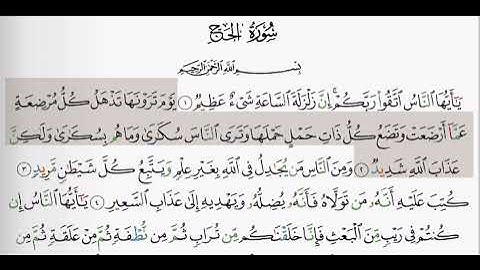 سُورَةُ الحَجِّ
بِسْمِ اللَّهِ الرَّحْمَٰنِ الرَّحِيمِ
يَٰٓأَيُّهَا ٱلنَّاسُ ٱتَّقُوا۟ رَبَّكُمْ ۚ إِنَّ زَلْزَلَةَ ٱلسَّاعَةِ شَىْءٌ عَظِيمٌ ١ يَوْمَ تَرَوْنَهَا تَذْهَلُ كُلُّ مُرْضِعَةٍ
عَمَّآ أَرْضَعَتْ وَتَضَعُ كُلُّ ذَاتِ حَمْلٍ حَمْلَهَا وَتَرَى ٱلنَّاسَ سُكَٰرَىٰ وَمَا هُم بِسُكَٰرَىٰ وَلَٰكِنَّ
عَذَابَ ٱللَّهِ شَدِيدٌ ٢ وَمِنَ ٱلنَّاسِ مَن يُجَٰدِلُ فِى ٱللَّهِ بِغَيْرِ عِلْمٍ وَيَتَّبِعُ كُلَّ شَيْطَٰنٍ مَّرِيدٍ ٣
كُتِبَ عَلَيْهِ أَنَّهُۥ مَن تَوَلَّاهُ فَأَنَّهُۥ يُضِلُّهُۥ وَيَهْدِيهِ إِلَىٰ عَذَابِ ٱلسَّعِيرِ ٤ يَٰٓأَيُّهَا ٱلنَّاسُ إِن
كُنتُمْ فِى رَيْبٍ مِّنَ ٱلْبَعْثِ فَإِنَّا خَلَقْنَٰكُم مِّن تُرَابٍ ثُمَّ مِن نُّطْفَةٍ ثُمَّ مِنْ عَلَقَةٍ ثُمَّ مِن